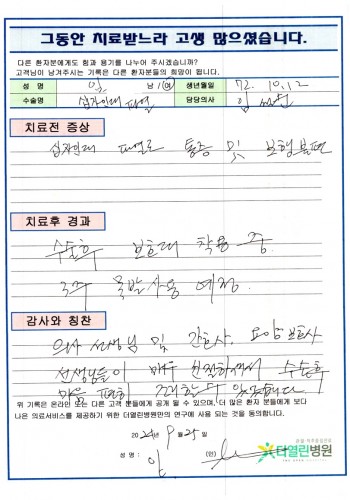 그동안 치료받느라 고생 많으셨습니다.
다른 환자분에게도 힘과 용기를 나누어 주시겠습니까?
고객님이 남겨주시는 기록은 다른 환자분들의 희망이 됩니다.
성 명 남 / 여 생년월일 72. 10. 12
수술명 십자인대 파열 담당의사 임
치료전 증상
십자인대 파열로 통증 및 보행불편
치료후 경과
수술후 보호대 착용 중.
3주 목발사용 예정.
감사와 칭찬
의사 선생님 및 간호사, 요양보호사
선생님들이 매우 친절하셔서 수술후
마음 편히 조리할 수 있었습니다.
위 기록은 온라인 또는 다른 고객 분들에게 공개 될 수 있으며, 더 많은 환자 분들에게 보다
나은 의료서비스를 제공하기 위한 더열린병원만의 연구에 사용 되는 것을 동의합니다.
2024년 9월 25일
성 명 : (인)
더열린병원